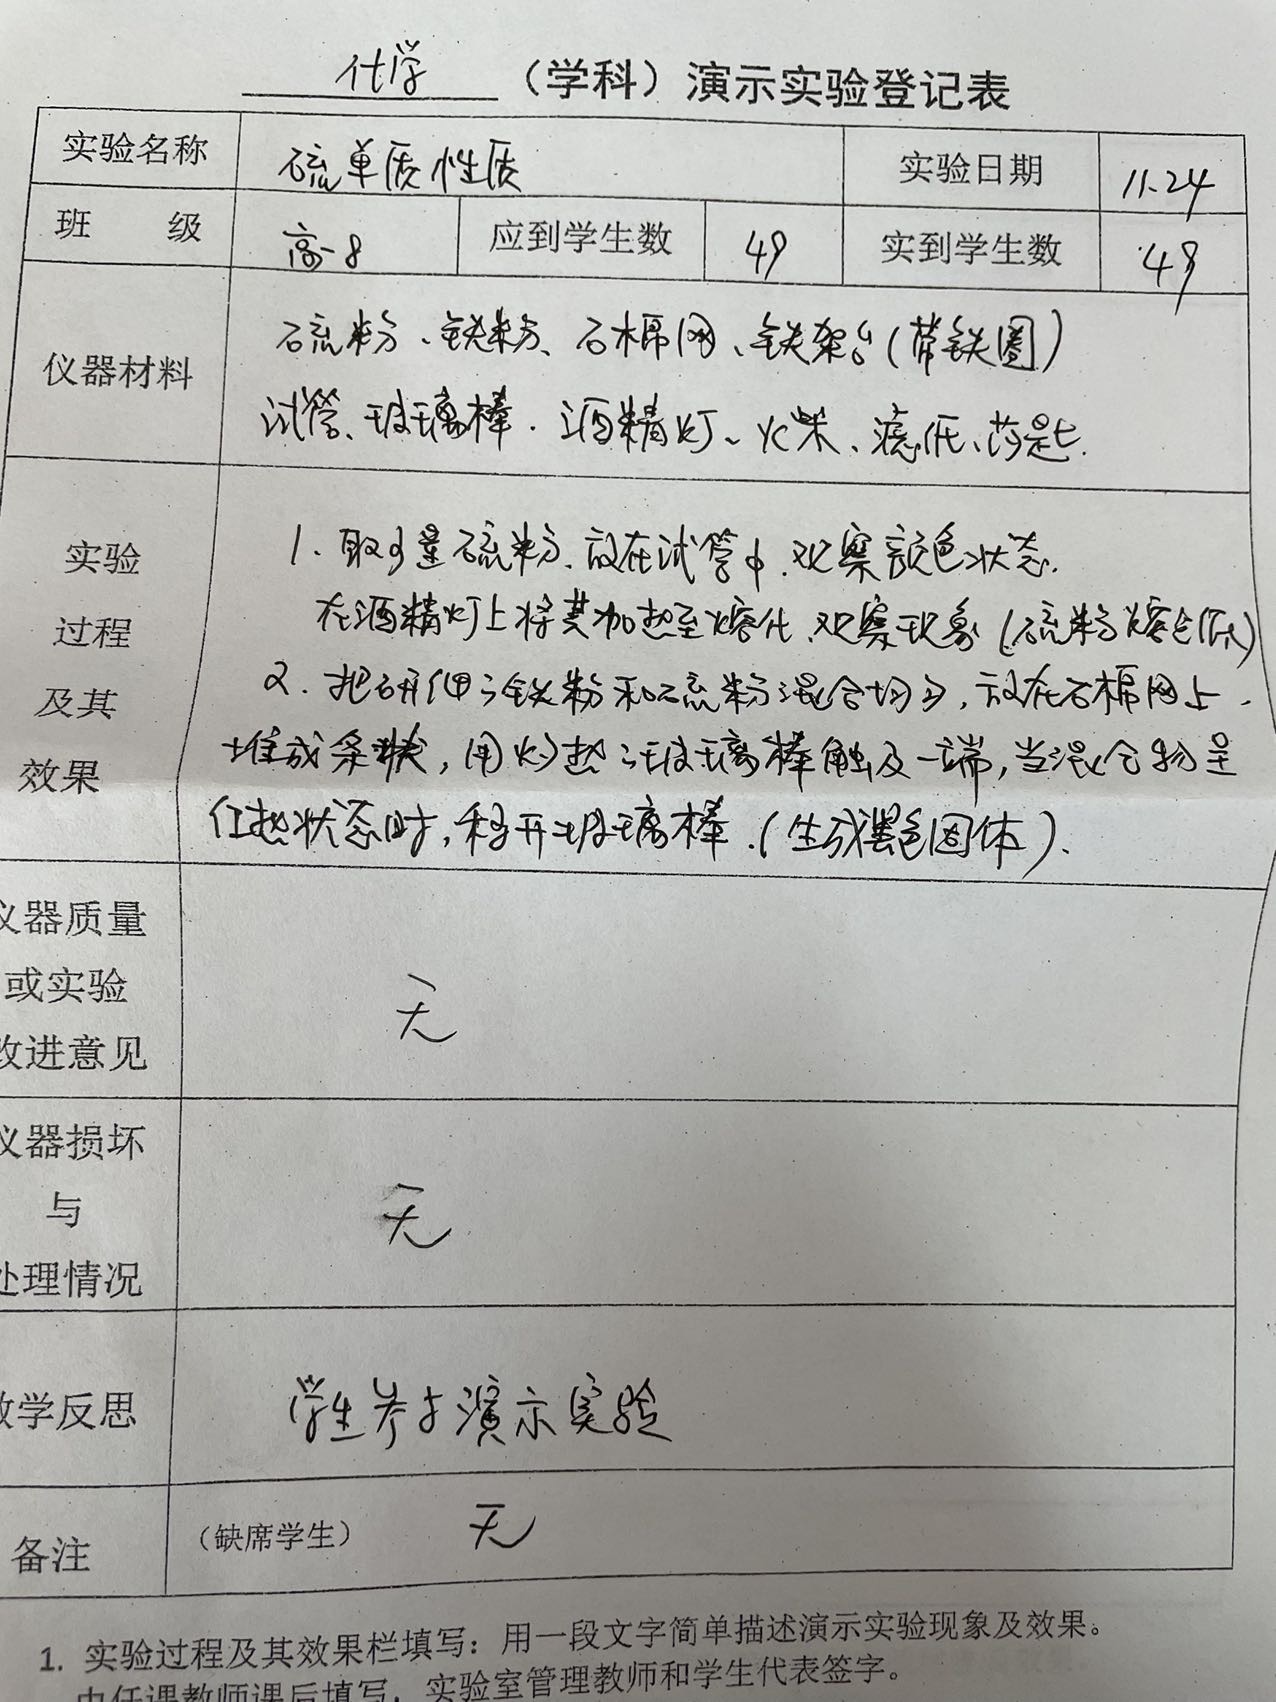 化学 （学科）演示实验登记表
实验名称 硫单质性质 实验日期 11.24
班 级 高一8 应到学生数 49 实到学生数 49
仪器材料
硫粉、铁粉、石棉网、铁架台(带铁圈)
试管、玻璃棒、酒精灯、火柴、滤纸、药匙.
实验
过程
及其
效果
1. 取少量硫粉、放在试管中、观察颜色状态.
在酒精灯上将其加热至熔化、观察现象(硫粉熔点低)
2. 把研细的铁粉和硫粉混合均匀，放在石棉网上、
堆成条状，用灼热的玻璃棒触及一端，当混合物呈
红热状态时，移开玻璃棒.(生成黑色固体).
仪器质量
或实验
改进意见
无
仪器损坏
与
处理情况
无
教学反思 学生参与演示实验
备注 （缺席学生） 无
1. 实验过程及其效果栏填写：用一段文字简单描述演示实验现象及效果。
由任课教师课后填写，实验室管理教师和学生代表签字。